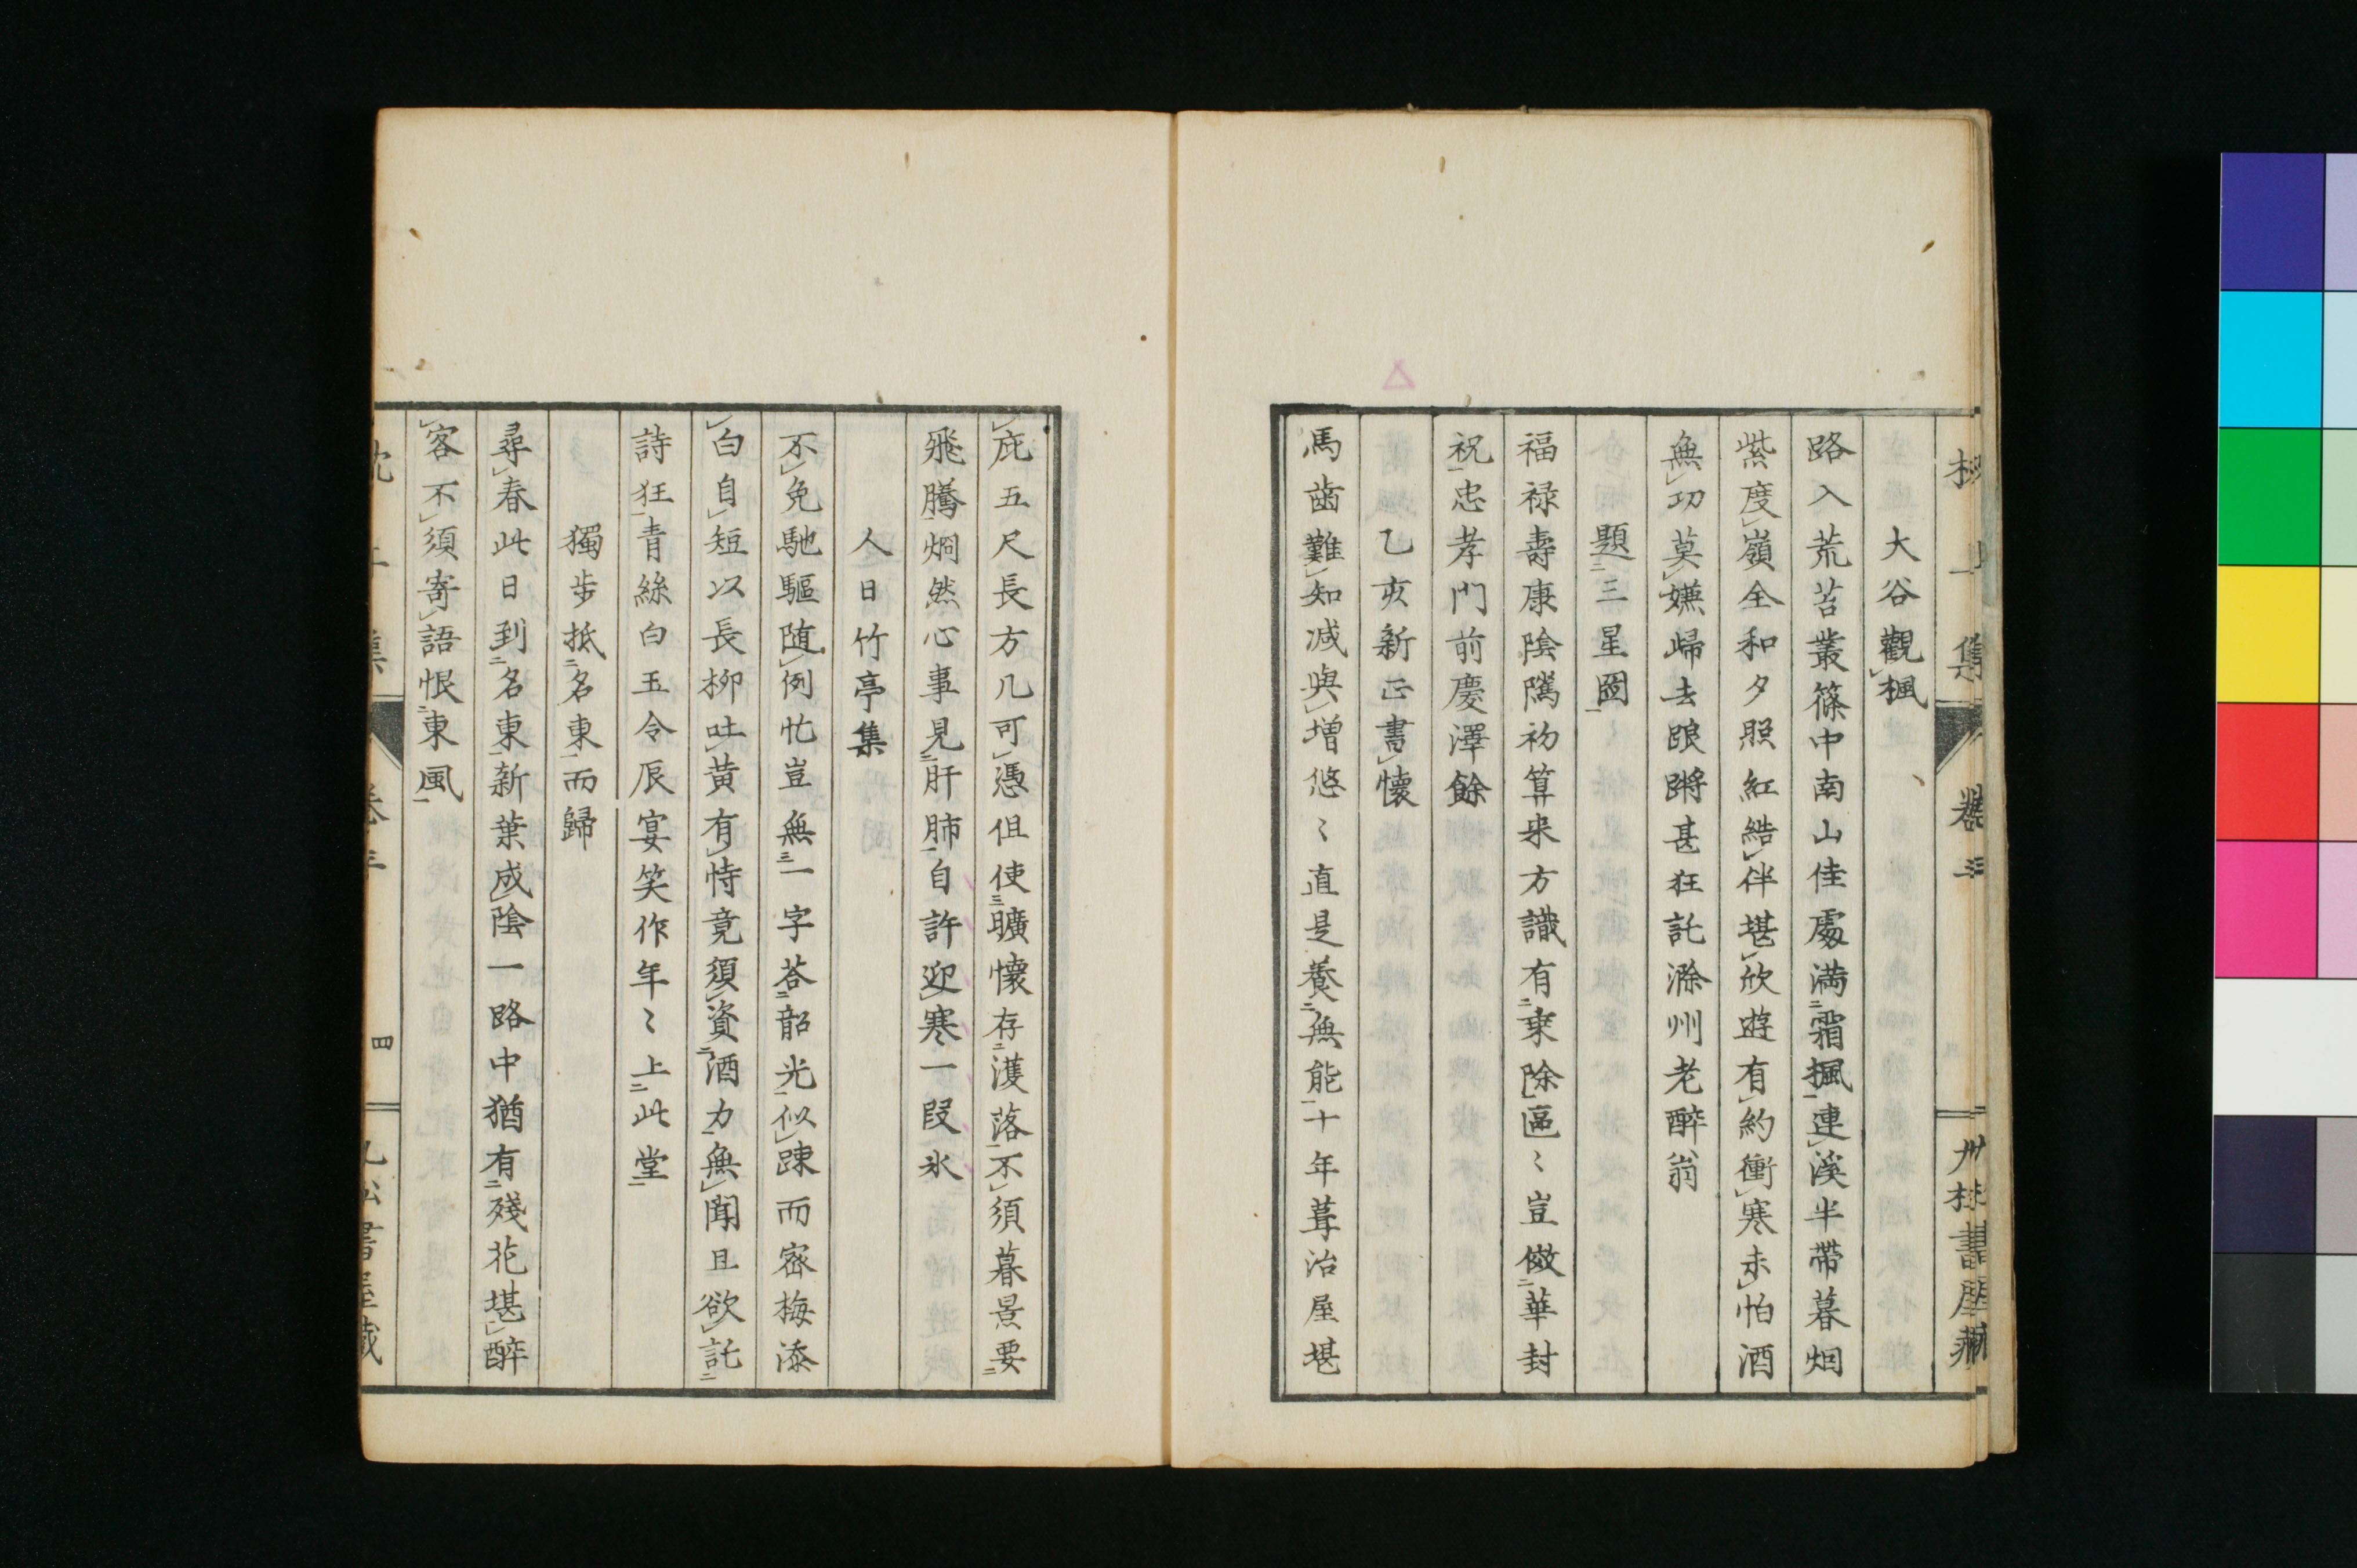 大谷觀楓
路入荒苔叢篠中南山佳處満霜楓連溪半帶暮烟
紫度嶺全和夕照紅結伴堪欣遊有約衝寒未怕酒
無功莫嫌歸去踉蹡甚狂託滁州老醉翁
題三星圖
福禄壽康陰隲初算来方識有乗除區〻豈倣華封
祝忠孝門前慶澤餘
乙亥新正書懐
馬齒難知减與増悠〻直是養無能十年葺治屋堪
庇五尺長方几可憑但使曠懐存濩落不須暮景要
飛騰炯然心事見肝肺自許迎寒一段氷
人日竹亭集
不免馳驅随例忙豈無一字荅韶光似踈而宻梅添
白自短以長柳吐黄有恃竟須資酒力無聞且欲託
詩狂青絲白玉令辰宴笑作年〻上此堂
獨步抵名東而歸
尋春此日到名東新葉成陰一路中猶有殘花堪醉
客不須寄語恨東風
集 卷三 四
書屋藏